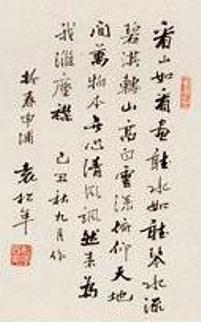 看山如看画听水如听琴水流
碧淇绕山高白云深俯仰天地
间万物本无心清风飒然来为
我涤尘襟
己丑秋九月作
於春申浦 袁松年